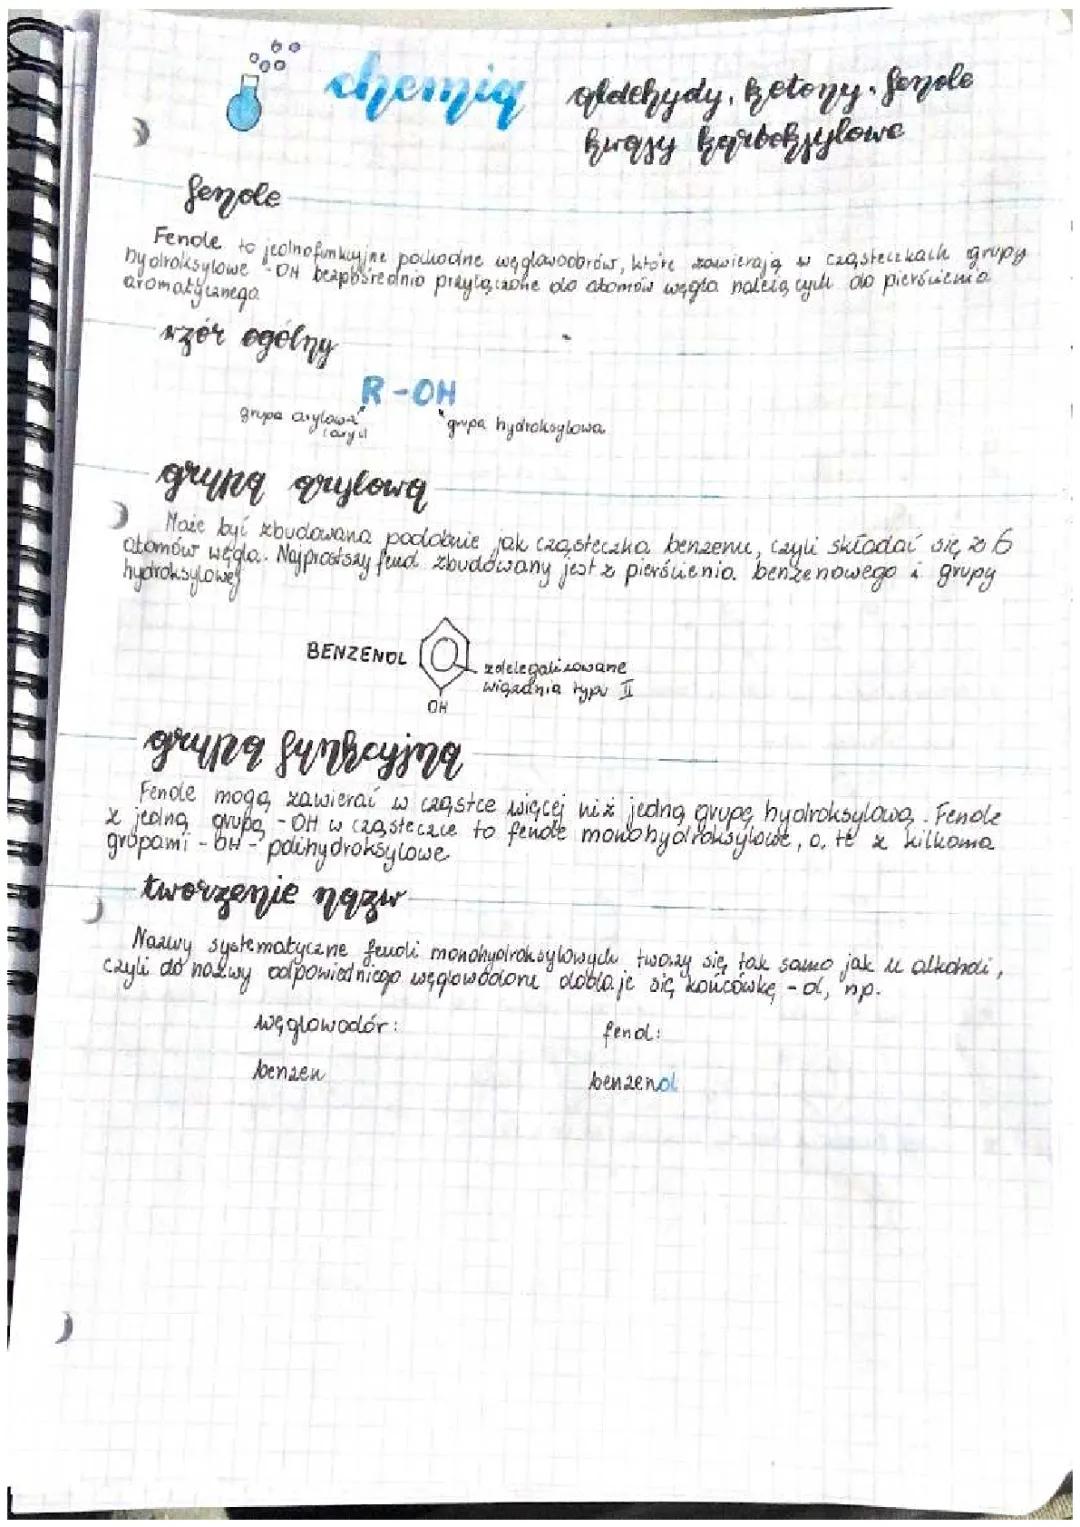 chemia
aldehydy, ketony, fenole
kwasy karboksylowe
fenole
Fenole to jednofunkcyjne pochodne węglowodorów, które zawierają w cząsteczkach grupy
hydroksylowe -OH bezpośrednio przyłączone do atomów węgla należących do pierścienia
aromatycznego
wzór ogólny
R-OH
grupa arylowa
(aryl
grupa hydroksylowa
grupa arylowa
Może być zbudowana podobnie jak cząsteczka benzenu, czyli składać się z 6
atomów węgla. Najprostszy fenol zbudowany jest z pierścienia benzenowego i grupy
hydroksylowej
BENZENOL
zdelegalizowane
wiązania typu II
OH
grupa funkcyjna
Fenole mogą zawierać w cząstce więcej niż jedną grupę hydroksylową. Fenole
z jedną grupą -OH w cząsteczce to fenole monohydroksylowe, a te z kilkoma
grupami -OH - polihydroksylowe
tworzenie nazw
Nazwy systematyczne fenoli monohydroksylowych tworzy się tak samo jak u alkoholi,
czyli do nazwy odpowiedniego węglowodoru dodaje się końcówkę -ol, np.
węglowodór:
fenol:
benzen
benzenol